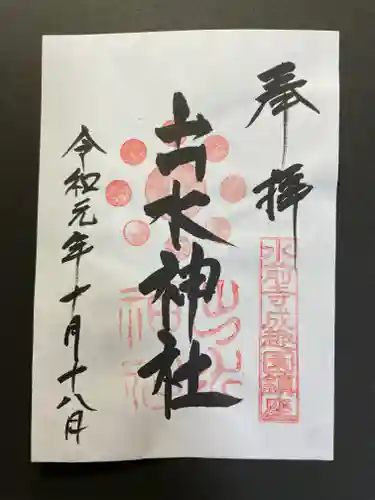 奉拝
水前寺成趣園鎮座
出水神社
出水
神社
令和元年十月十八日